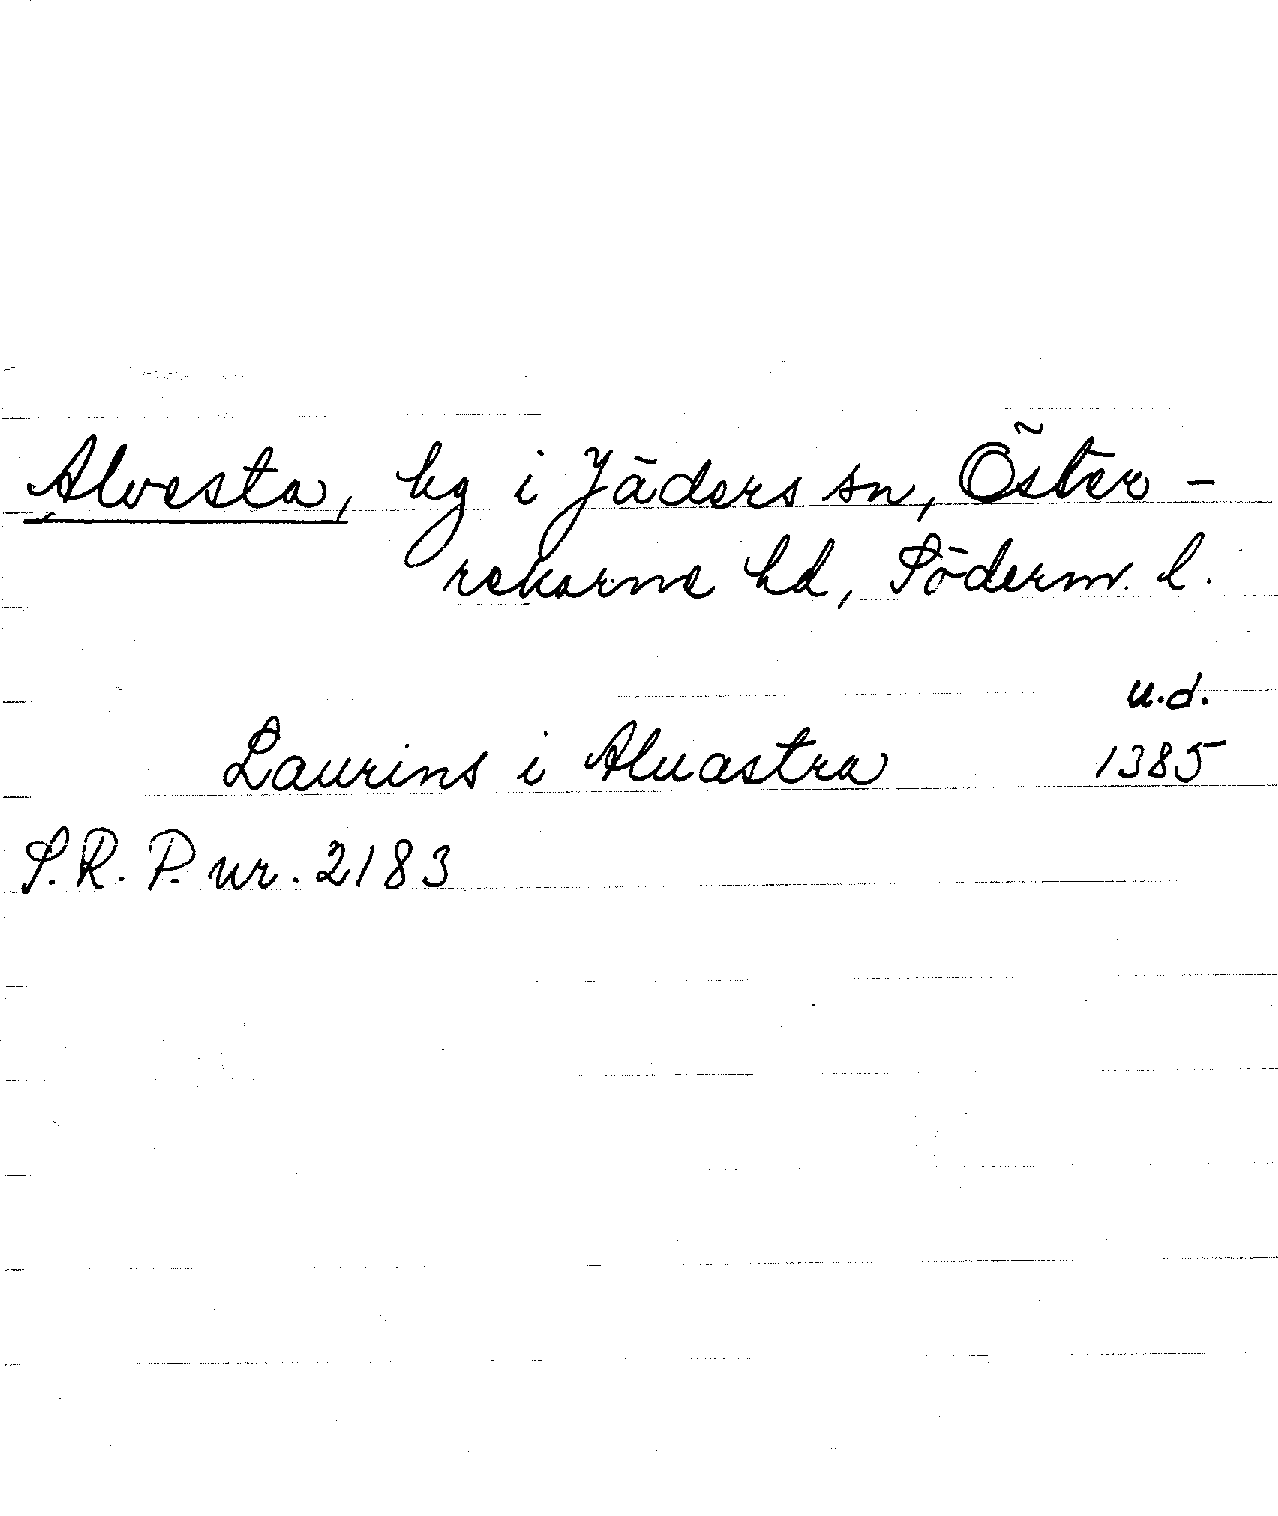 Alvesta, hg i Jäders sn, Öster-
rekarne hd, Söderm. l.
u.d.
Laurins i Aluastra 1385
S.R.P. nr. 2183